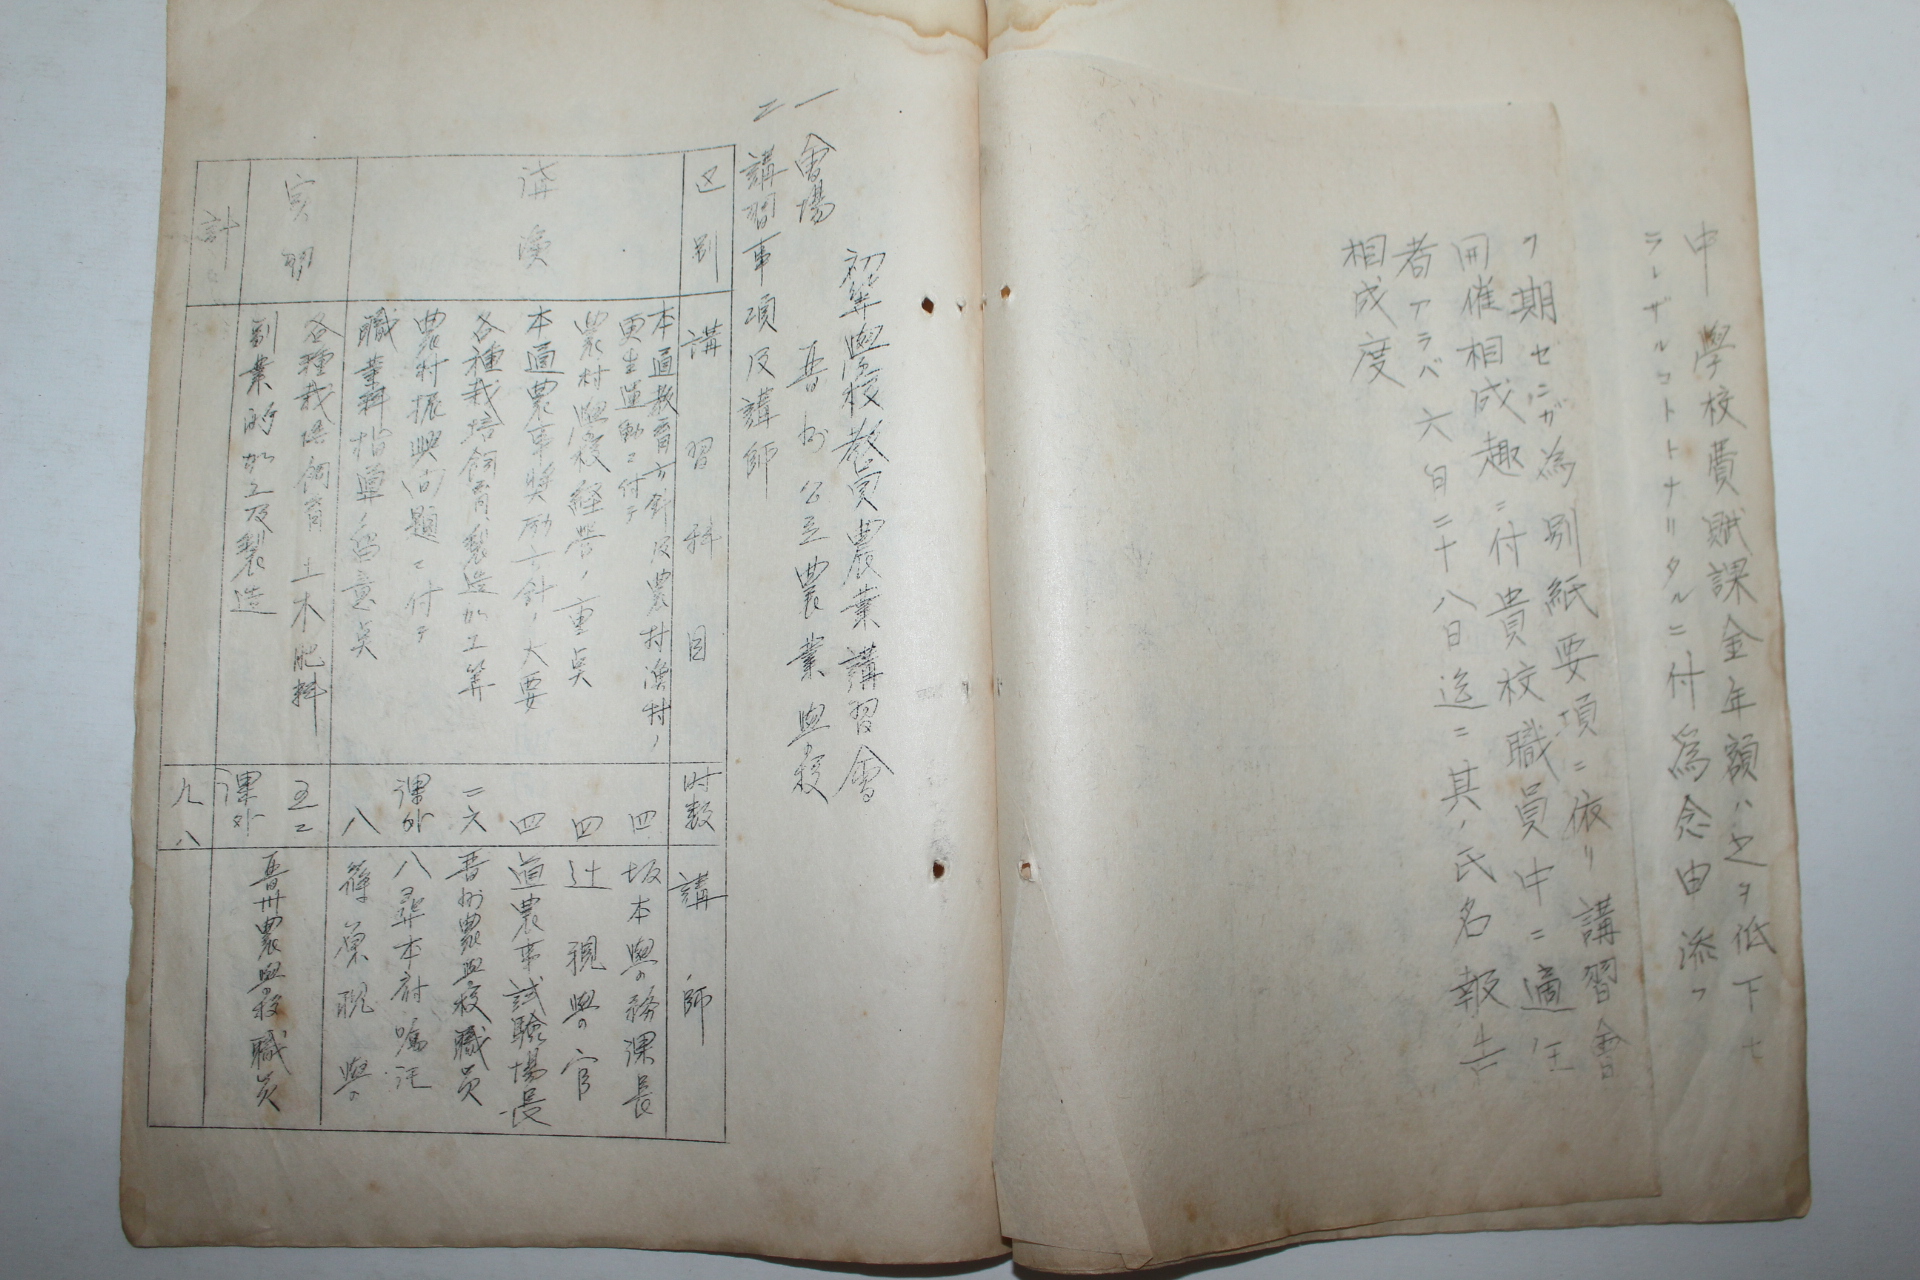 中學校費賦課金年額ハ之ヲ低下セ
ラレザルコトトナリタルニ付為念由添フ
ヲ期セニガ為別紙要項ニ依リ講習會
開催相成趣ニ付貴校職員中ニ適任
者アラバ六月二十八日迄ニ其ノ氏名報告
相成度
初等學校教員農業講習會
一 會場 晋州公立農業學校
二 講習事項及講師
区別 講習科目 时数 講師
講演
本道教育方針及農村漁村ノ
更生運動ニ付テ 四 坂本學務課長
農村學校経営ノ重点 四 辻視學官
本道農事奨励方針ノ大要 四 道農事試驗場長
各種栽培飼育、製造加工等 二六 晋州農學校職員
農村振興问題ニ付テ 課外 八尋本府嘱託
職業科指導ノ留意点 八 篠原視學
实習
各種栽培飼育土木肥料 五二
副業的加工及製造 课外
晋州農學校職员
計 九八